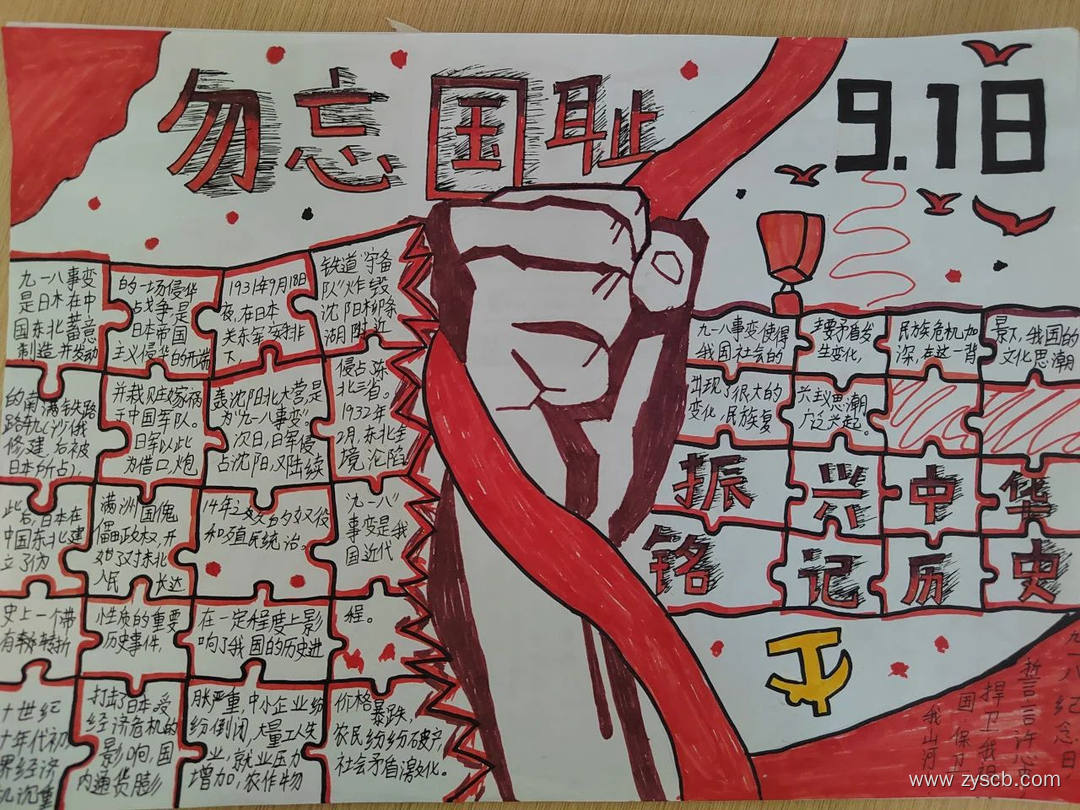 勿忘国耻
9.18
九一八事变
是日本在中
国东北蓄意
制造并发动
的一场侵华
占戈争,是
日本帝国
主义侵华的开端
1931年9月18日
夜,在日本
关东军安排
下
铁道"守备
队"炸毁
沈阳柳条
湖附近
的南满铁路
路轨(沙俄
修建,后被
日本所占),
并栽贝庄嫁祸
于中国军队。
日军以此
为借口,炮
轰沈阳北大营是
为"九一八事变"。
次日,日军侵
占沈阳,又陆续
侵占东
北三省。
1932年
2月,东北全
境沦陷
此后,日本在
中国东北建
立了伪
满洲国傀
儡政权,开
始了对东北
人民 长达
14年之久的奴役
和殖民统治。
"九一八"
事变是我
国近代
史上一个带
有转折
性质的重要
历史事件,
在一定程度上影
响了我国的历史进
程。
十世纪
十年代初
界经济
机沉重
打击了日本,受
经济危机的
影响,国
内通货膨
胀严重,中小企业纷
纷倒闭,大量工人失
业,就业压力
增加,农作物
价格
暴跌,
农民纷纷破产,
社会矛盾激化。
九一八事变使得
我国社会的
主要矛盾发
生变化,
民族危机加
深,在这一背
景下,我国的
文化思潮
出现了很大的
变化,民族复
兴思潮
广泛兴起。
振兴中华
铭记历史
九一八纪念日,
誓言许忠
捍卫我
国保卫
我山河
www.zyscb.com